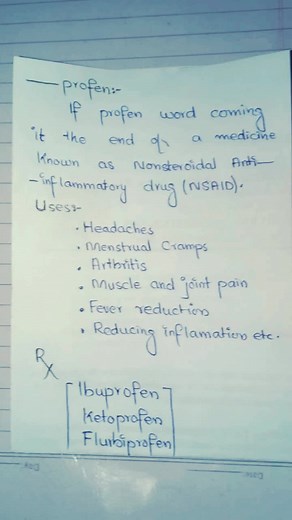 — profen:-
If profen word coming
it the end of a medicine
Known as Nonsteroidal Anti-
-inflammatory drug (NSAID).
Uses:-
• Headaches
• Menstrual Cramps
• Arthritis
• Muscle and joint pain
• Fever reduction
• Reducing inflamation etc.
Rx
Ibuprofen
Ketoprofen
Flurbiprofen